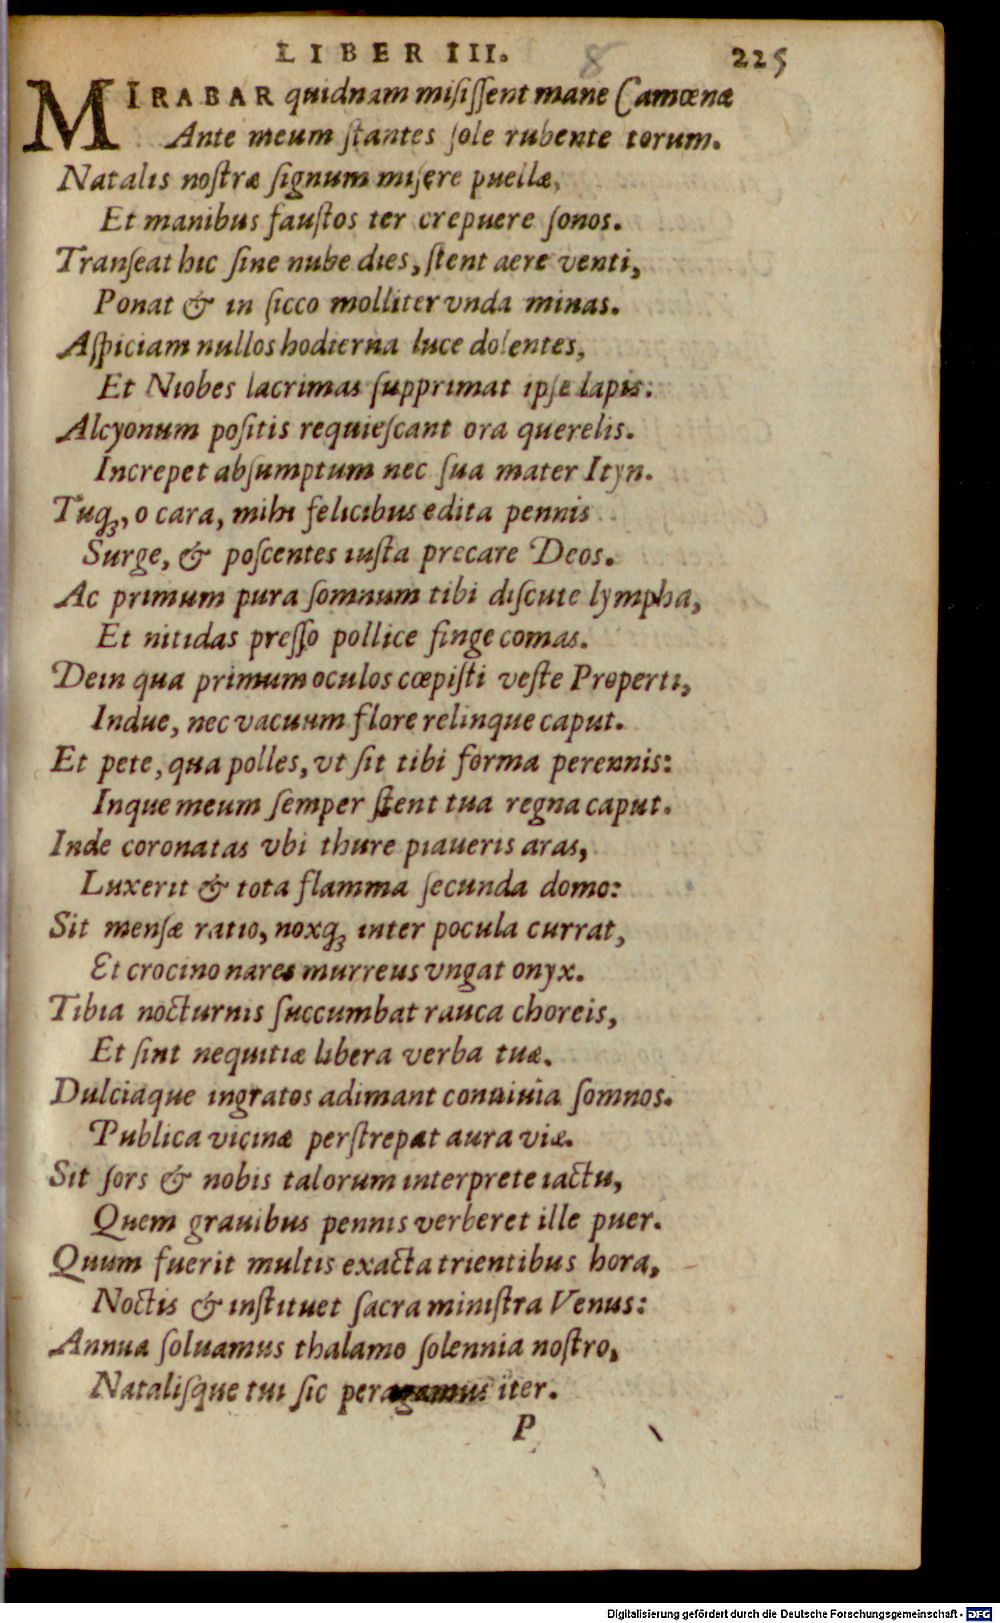 LIBER III. 8 225
MIRABAR quidnam misissent mane Camœnæ
Ante meum stantes sole rubente torum.
Natalis nostræ signum misere puellæ,
Et manibus faustos ter crepuere sonos.
Transeat hic sine nube dies, stent aere venti,
Ponat & in sicco molliter vnda minas.
Aspiciam nullos hodierna luce dolentes,
Et Niobes lacrimas supprimat ipse lapis:
Alcyonum positis requiescant ora querelis.
Increpet absumptum nec sua mater Ityn.
Tuq;, o cara, mihi felicibus edita pennis
Surge, & poscentes iusta precare Deos.
Ac primum pura somnum tibi discute lympha,
Et nitidas presso pollice finge comas.
Dein qua primum oculos cœpisti veste Properti,
Indue, nec vacuum flore relinque caput.
Et pete, qua polles, vt sit tibi forma perennis:
Inque meum semper stent tua regna caput.
Inde coronatas vbi thure piaueris aras,
Luxerit & tota flamma secunda domo:
Sit mensæ ratio, noxq; inter pocula currat,
Et crocino nares murreus vngat onyx.
Tibia nocturnis succumbat rauca choreis,
Et sint nequitiæ libera verba tuæ.
Dulciaque ingratos adimant conuiuia somnos.
Publica vicinæ perstrepat aura viæ.
Sit sors & nobis talorum interprete iactu,
Quem grauibus pennis verberet ille puer.
Quum fuerit multis exacta trientibus hora,
Noctis & instituet sacra ministra Venus:
Annua soluamus thalamo solennia nostro,
Natalisque tui sic peragamus iter.
P
Digitalisierung gefördert durch die Deutsche Forschungsgemeinschaft - DFG